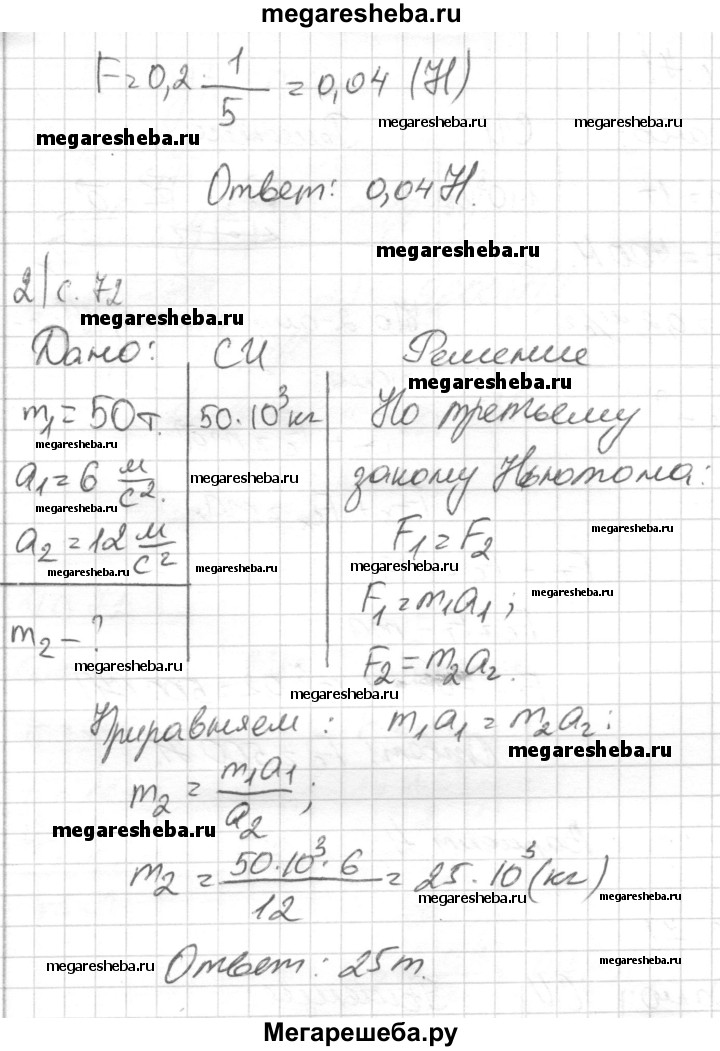 megaresheba.ru
F = 0,2 · 1/5 = 0,04 (Н)
megaresheba.ru megaresheba.ru
megaresheba.ru
Ответ: 0,04 Н.
megaresheba.ru
2| с. 72
megaresheba.ru
Дано: СИ Решение
megaresheba.ru
m₁ = 50 т. 50·10³ кг По третьему
megaresheba.ru
a₁ = 6 м/с². закону Ньютона:
megaresheba.ru
megaresheba.ru
a₂ = 12 м/с² F₁ = F₂
megaresheba.ru
megaresheba.ru megaresheba.ru megaresheba.ru
F₁ = m₁a₁;
megaresheba.ru
m₂ - ?
megaresheba.ru
F₂ = m₂a₂.
megaresheba.ru
Приравняем: m₁a₁ = m₂a₂;
megaresheba.ru
m₂ = m₁a₁/a₂;
megaresheba.ru
m₂ = 50·10³·6/12 = 25·10³ (кг)
megaresheba.ru megaresheba.ru
megaresheba.ru Ответ: 25 т. megaresheba.ru
Мегарешеба.ру